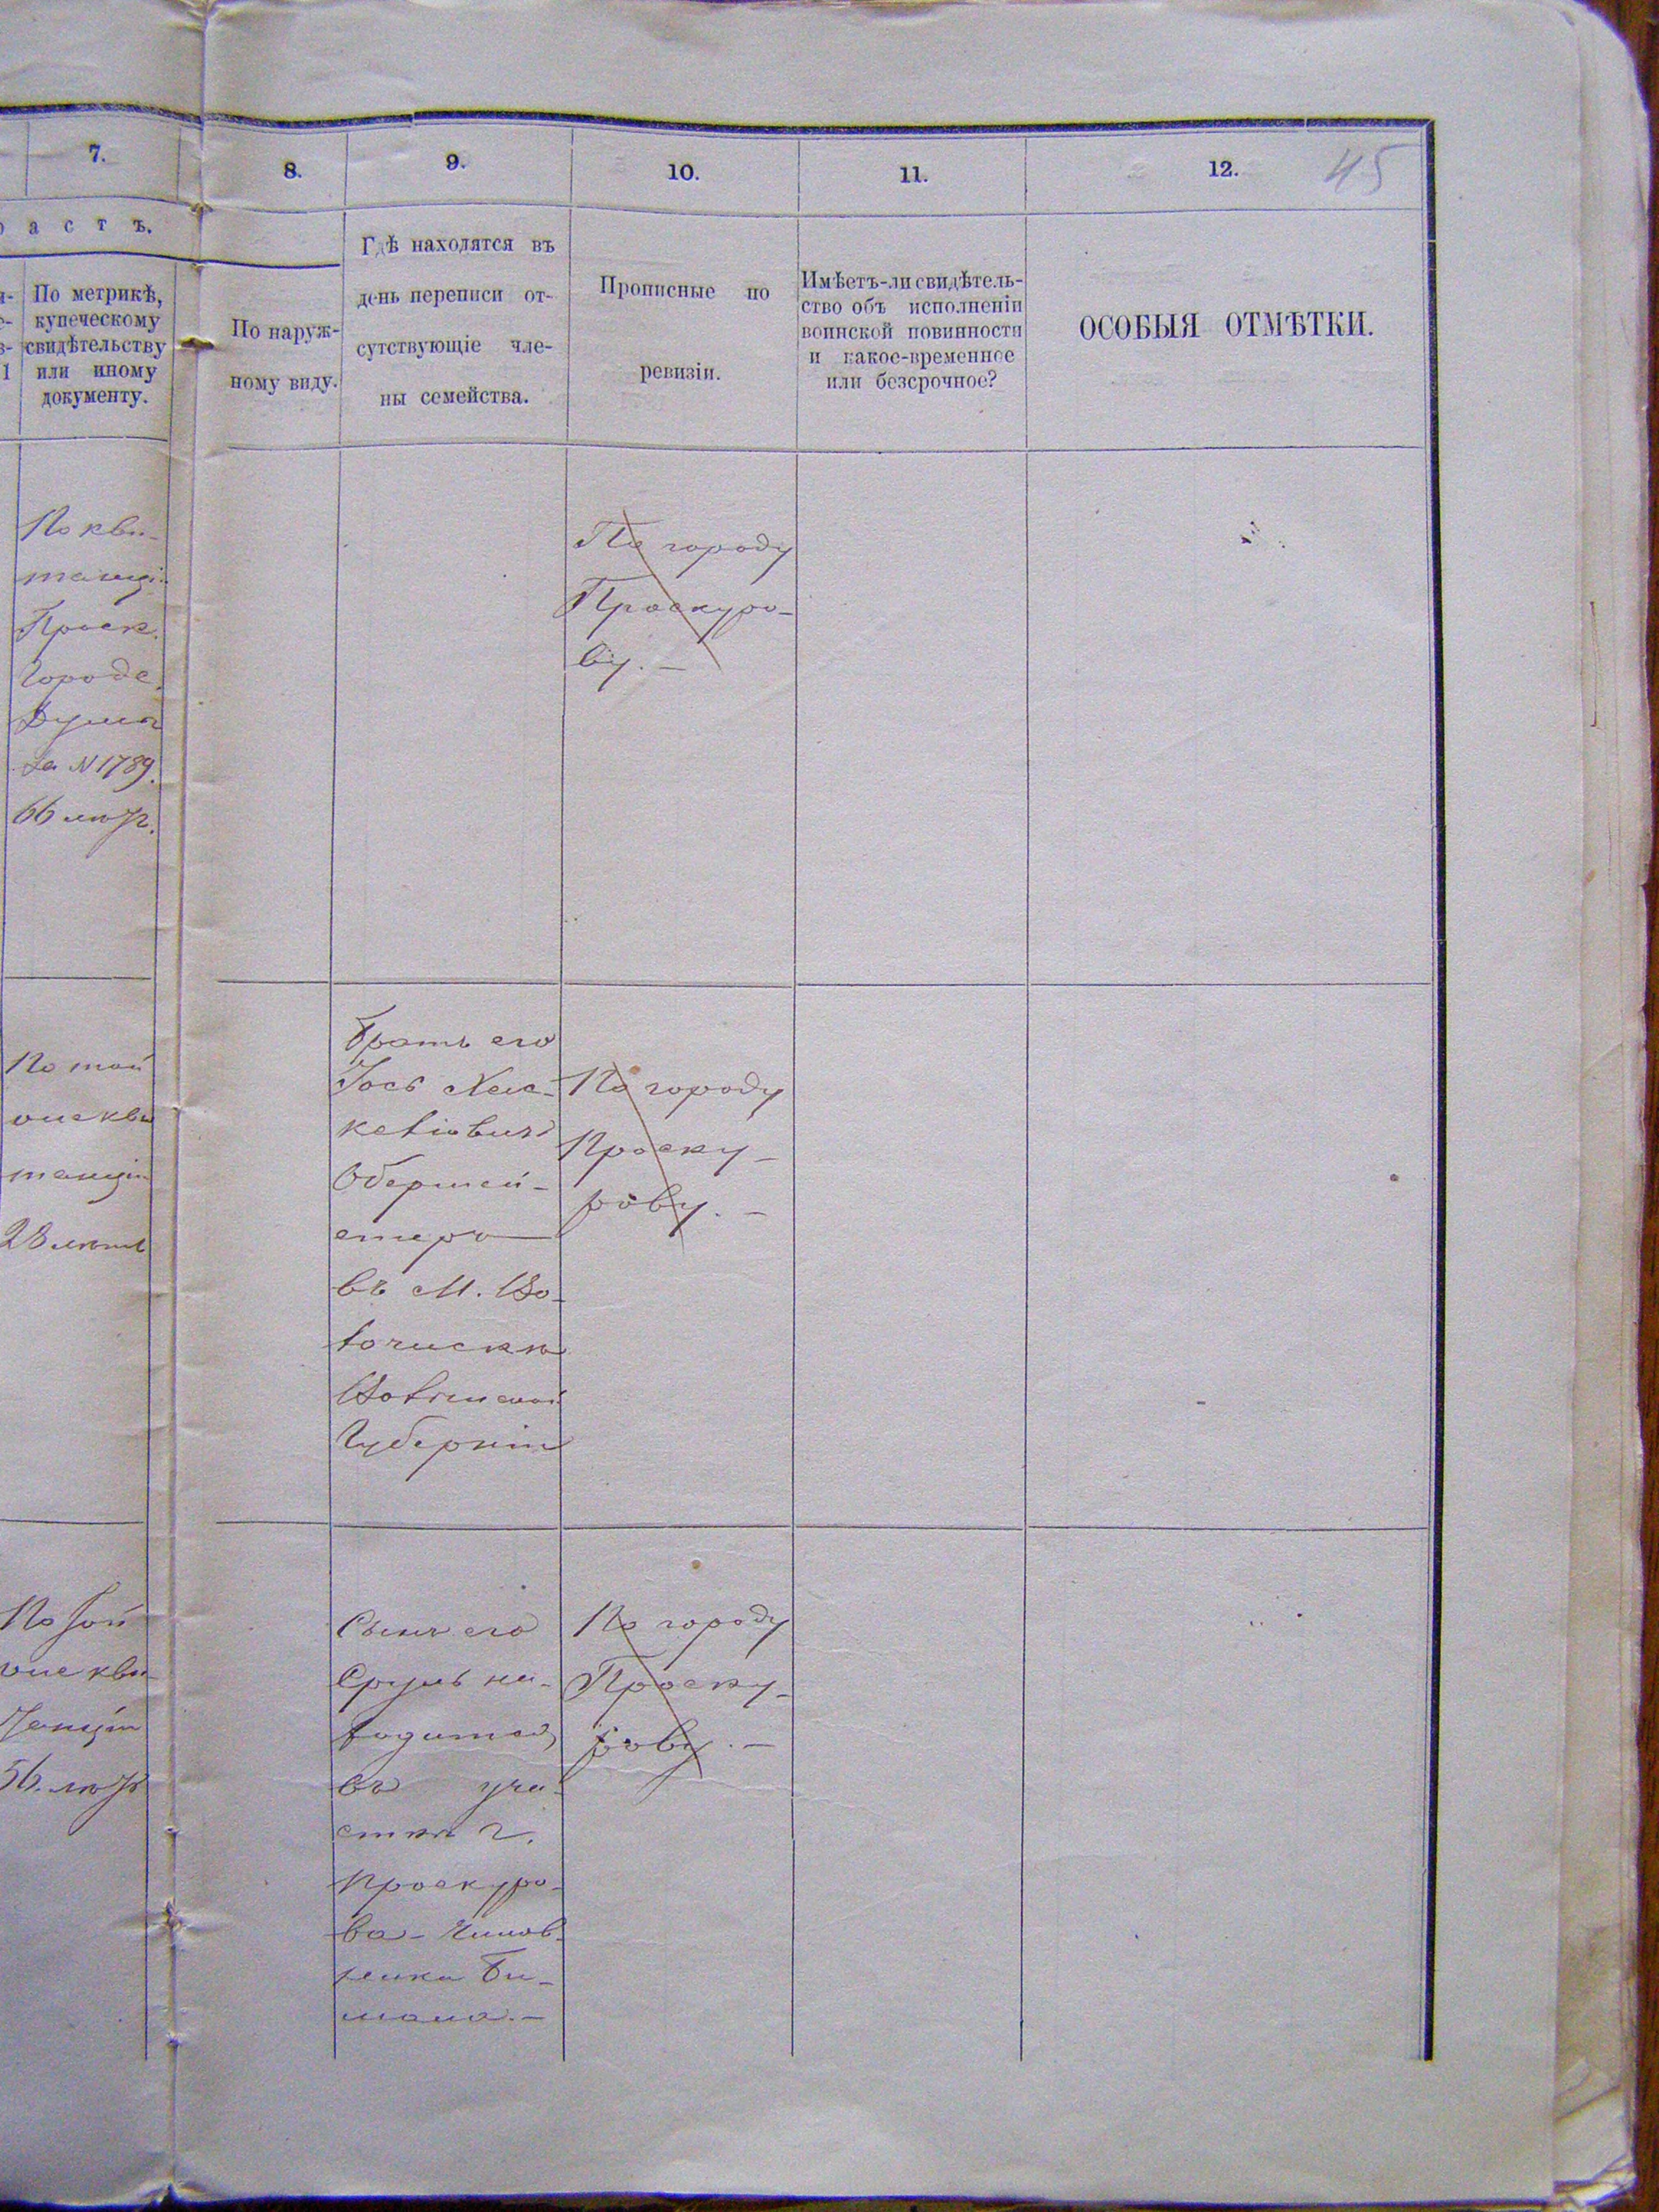 7.
8.
9.
10.
11.
12.
45
а с т ъ.
По метрикѣ,
купеческому
свидѣтельству
или иному
документу.
По наруж-
ному виду.
Гдѣ находятся въ
день переписи от-
сутствующіе чле-
ны семейства.
Прописные по
ревизіи.
Имѣетъ-ли свидѣтель-
ство объ исполненіи
воинской повинности
и какое-временное
или безсрочное?
ОСОБЫЯ ОТМѢТКИ.
По кви-
танціи
Проск.
Городс.
Думы
за N 1789.
66 лѣтъ.
По городу
Проскуро-
ву. —
По той
же кви
танціи
28 лѣтъ
Братъ его
Іось Хас-
келіовичъ
Обершей-
стеръ
въ М. Во-
лочискѣ
Волынской
Губерніи
По городу
Проску-
рову. —
По той
же кви-
танціи
56. лѣтъ
Сынъ его
Сруль на-
ходится
въ уча-
сткѣ г.
Проскуро-
ва - Чинов-
ника
По городу
Проску-
рову. —